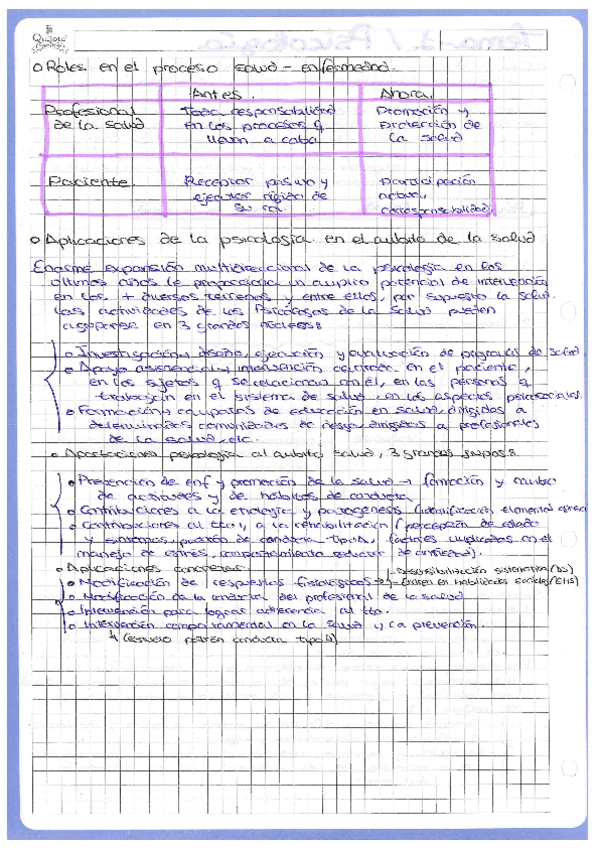 o Roles en el proceso salud - enfermedad.
Antes. Ahora.
Profesional de la salud
Toda responsabilidad en los procesos q llevan a cabo
Promoción y protección de la salud
Paciente
Receptor pasivo y ejecutor rígido de su rol.
Participación activa, corresponsabilidad.
o Aplicaciones de la psicología en el ámbito de la salud
Enorme expansión multidireccional de la psicología en los
últimos años le proporciona un amplio potencial de intervención
en los + diversos terrenos y entre ellos, por supuesto la salud.
Las actividades de los Psicólogos de la Salud pueden
agruparse en 3 grandes núcleos:
o Investigación, diseño, ejecución y evaluación de programas de salud.
o Apoyo asistencial, intervención centrada en el paciente,
en los sujetos q se relacionan con él, en las personas q
trabajan en el sistema de salud, en los aspectos psicosociales.
o Formación, campañas de educación en salud, dirigidas a
determinadas comunidades de riesgo, dirigidas a profesionales
de la salud, etc.
o Aportaciones psicología al ámbito salud, 3 grandes grupos:
o Prevención de enf y promoción de la salud → formación y cambio
de actitudes y de hábitos de conducta
o Contribuciones a la etiología y patogénesis (identificación elementos
o Contribuciones al tto y a la rehabilitación (percepción de estado
y síntomas, patrón de conducta tipo A, factores implicados en el
manejo de estrés, comportamiento reductor de ansiedad).
o Aplicaciones concretas:
o Modificación de respuestas fisiológicas → - Desensibilización sistemática (DS)
- Entren en Habilidades Sociales (EHS)
o Modificación de la conducta del profesional de la salud
o Intervención para lograr adherencia al tto.
o Intervención comportamental en la salud y la prevención.
↳ ( patrón conducta tipo A)